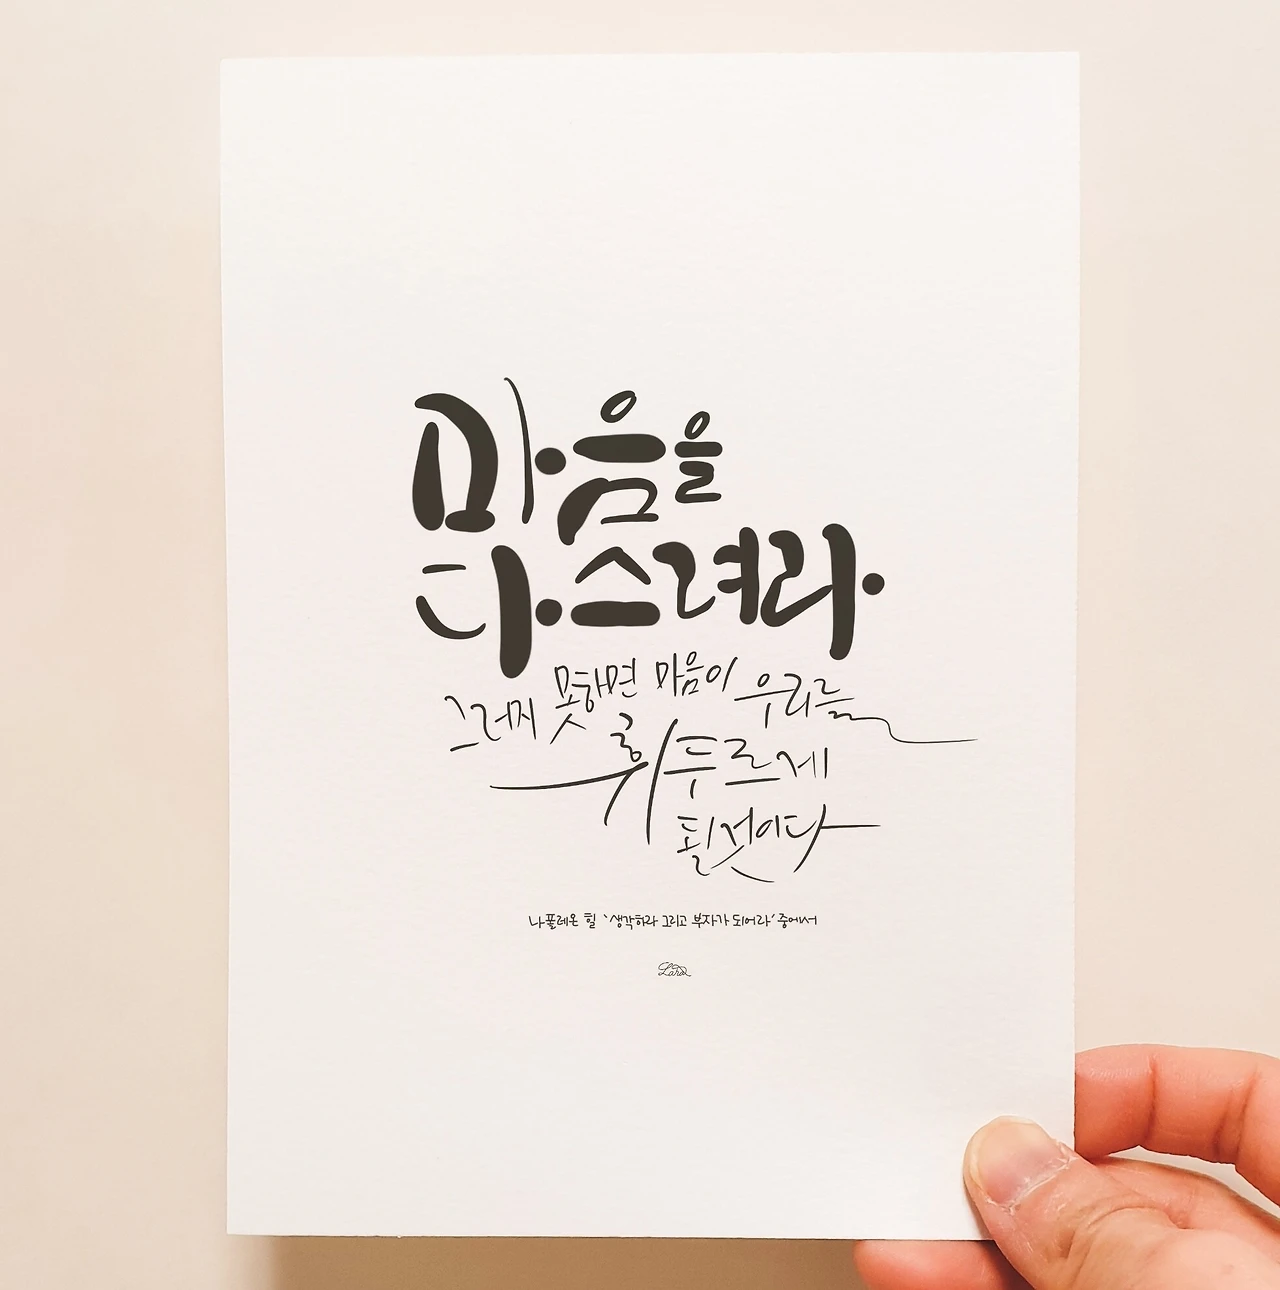 마음을
다스려라
그러지 못하면 마음이 우리를
휘두르게
될것이다
나폴레온 힐 '생각하라 그리고 부자가 되어라' 중에서
Lara